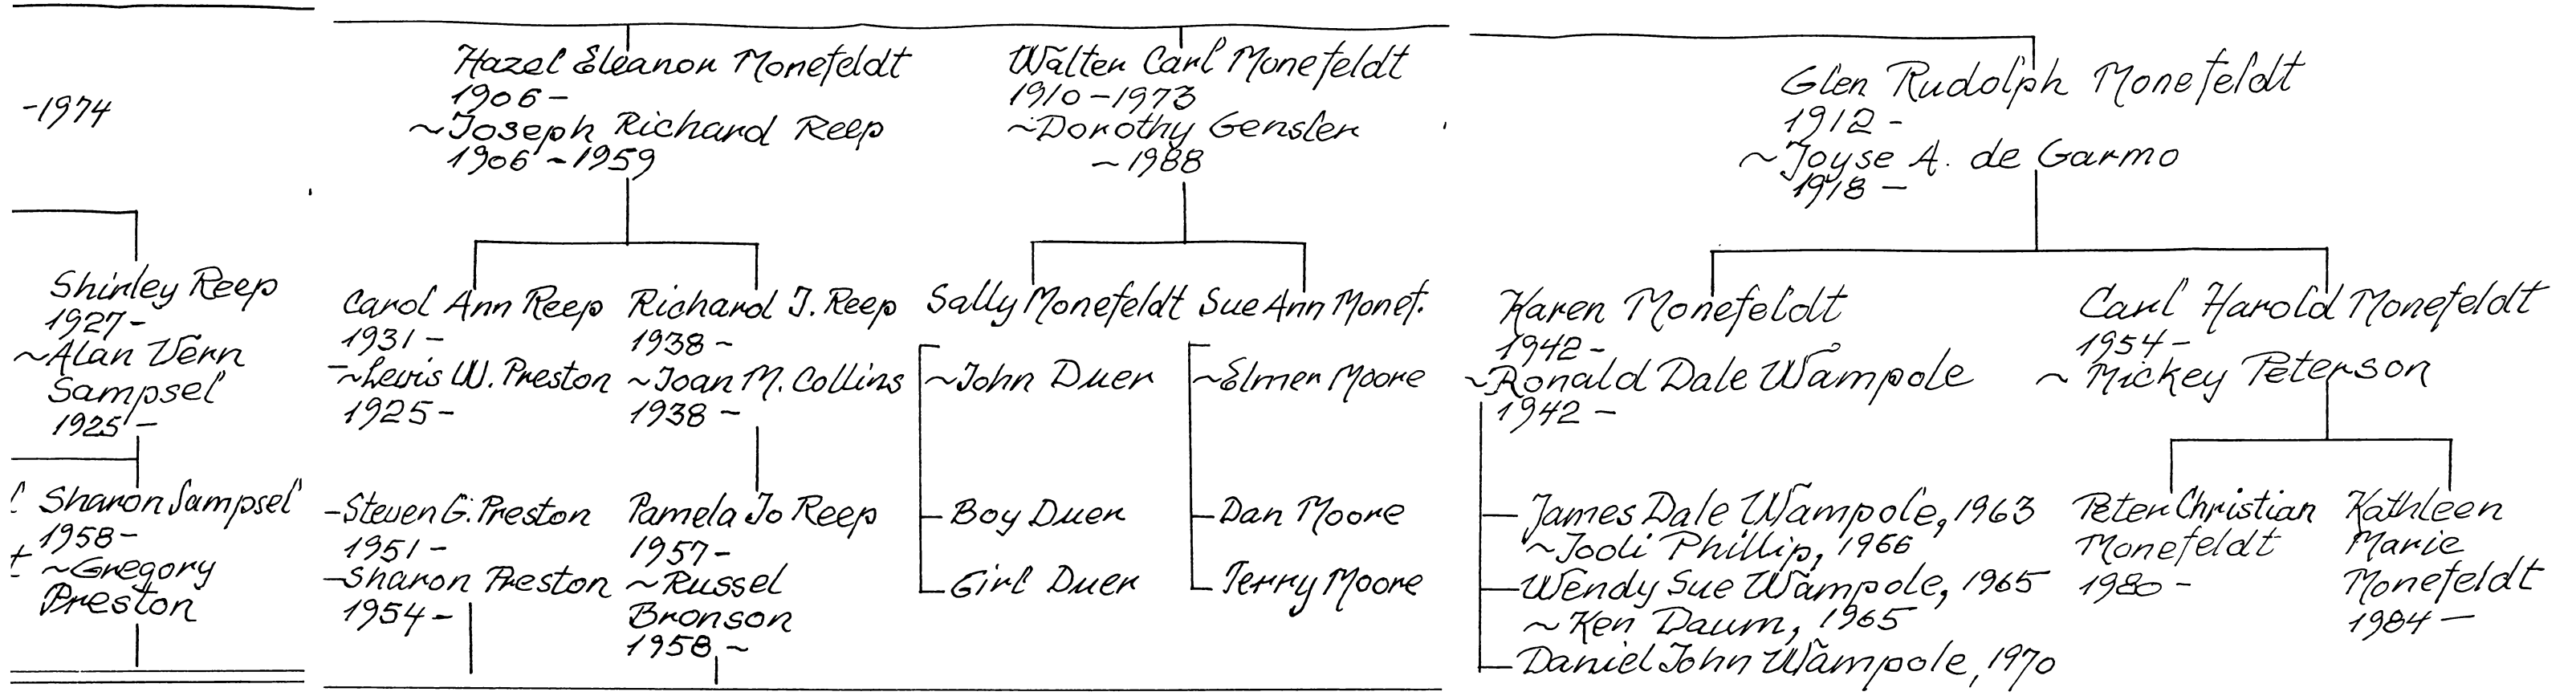 -1974
Shirley Reep
1927-
~Alan Vern
Sampsel
1925-
Sharon Sampsel
1958-
~Gregory
Preston
Hazel Eleanor Monefeldt
1906-
~Joseph Richard Reep
1906-1959
Carol Ann Reep
1931-
~Lewis W. Preston
1925-
-Steven G. Preston
1951-
-Sharon Preston
1954-
Richard J. Reep
1938-
~Joan M. Collins
1938-
Pamela Jo Reep
1957-
~Russel
Bronson
1958-
Walter Carl Monefeldt
1910-1973
~Dorothy Gensler
-1988
Sally Monefeldt
~John Duer
Boy Duer
Girl Duer
Sue Ann Monef.
~Elmer Moore
Dan Moore
Terry Moore
Glen Rudolph Monefeldt
1912-
~Joyse A. de Garmo
1918-
Karen Monefeldt
1942-
~Ronald Dale Wampole
1942-
James Dale Wampole, 1963
~Jodi Phillip, 1966
Wendy Sue Wampole, 1965
~Ken Daum, 1965
Daniel John Wampole, 1970
Carl Harold Monefeldt
1954-
~Mickey Peterson
Peter Christian
Monefeldt
1980-
Kathleen
Marie
Monefeldt
1984-